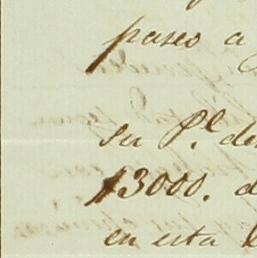 paseo a
su P.l de
13000. d
en esta